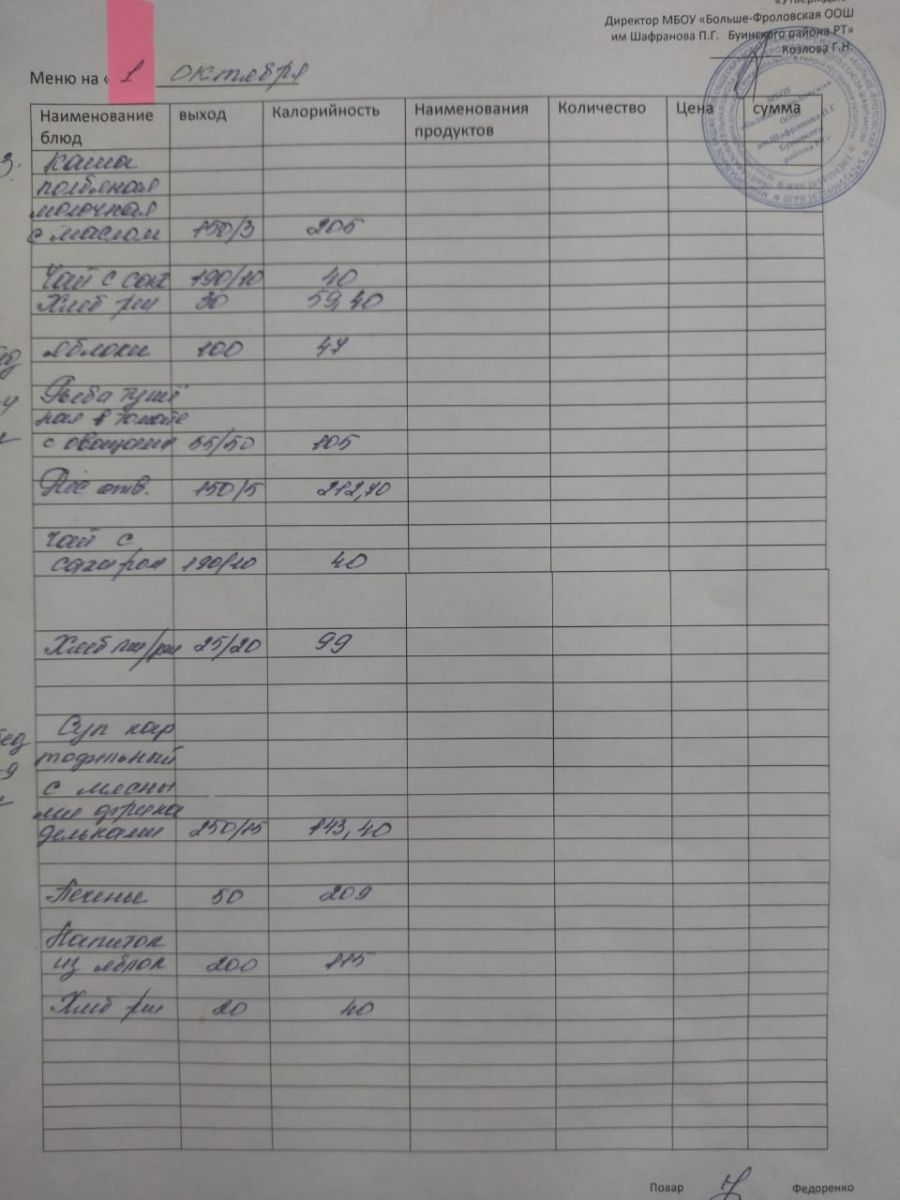 «Утверждаю
Директор МБОУ «Больше-Фроловская ООШ
им Шафранова П.Г. Буинского района РТ»
Козлова Г.Н.
Меню на « 1 октября
Наименование блюд выход Калорийность Наименования продуктов Количество Цена сумма
З. Каша
полбяная
молочная
с маслом 150/3 205
Чай с сах 190/10 40
Хлеб рж 30 59,40
яблоки 100 47
Рыба тушё
ная в томате
с овощами 55/50 105
Рис отв. 150/5 212,70
Чай с
сахаром 190/10 40
Хлеб пш/рж 25/20 99
Суп кар
тофельный
с мясны
ми фрика
дельками 250/15 143,40
Печенье 50 209
Напиток
из яблок 200 115
Хлеб рж 20 40
Повар Федоренко